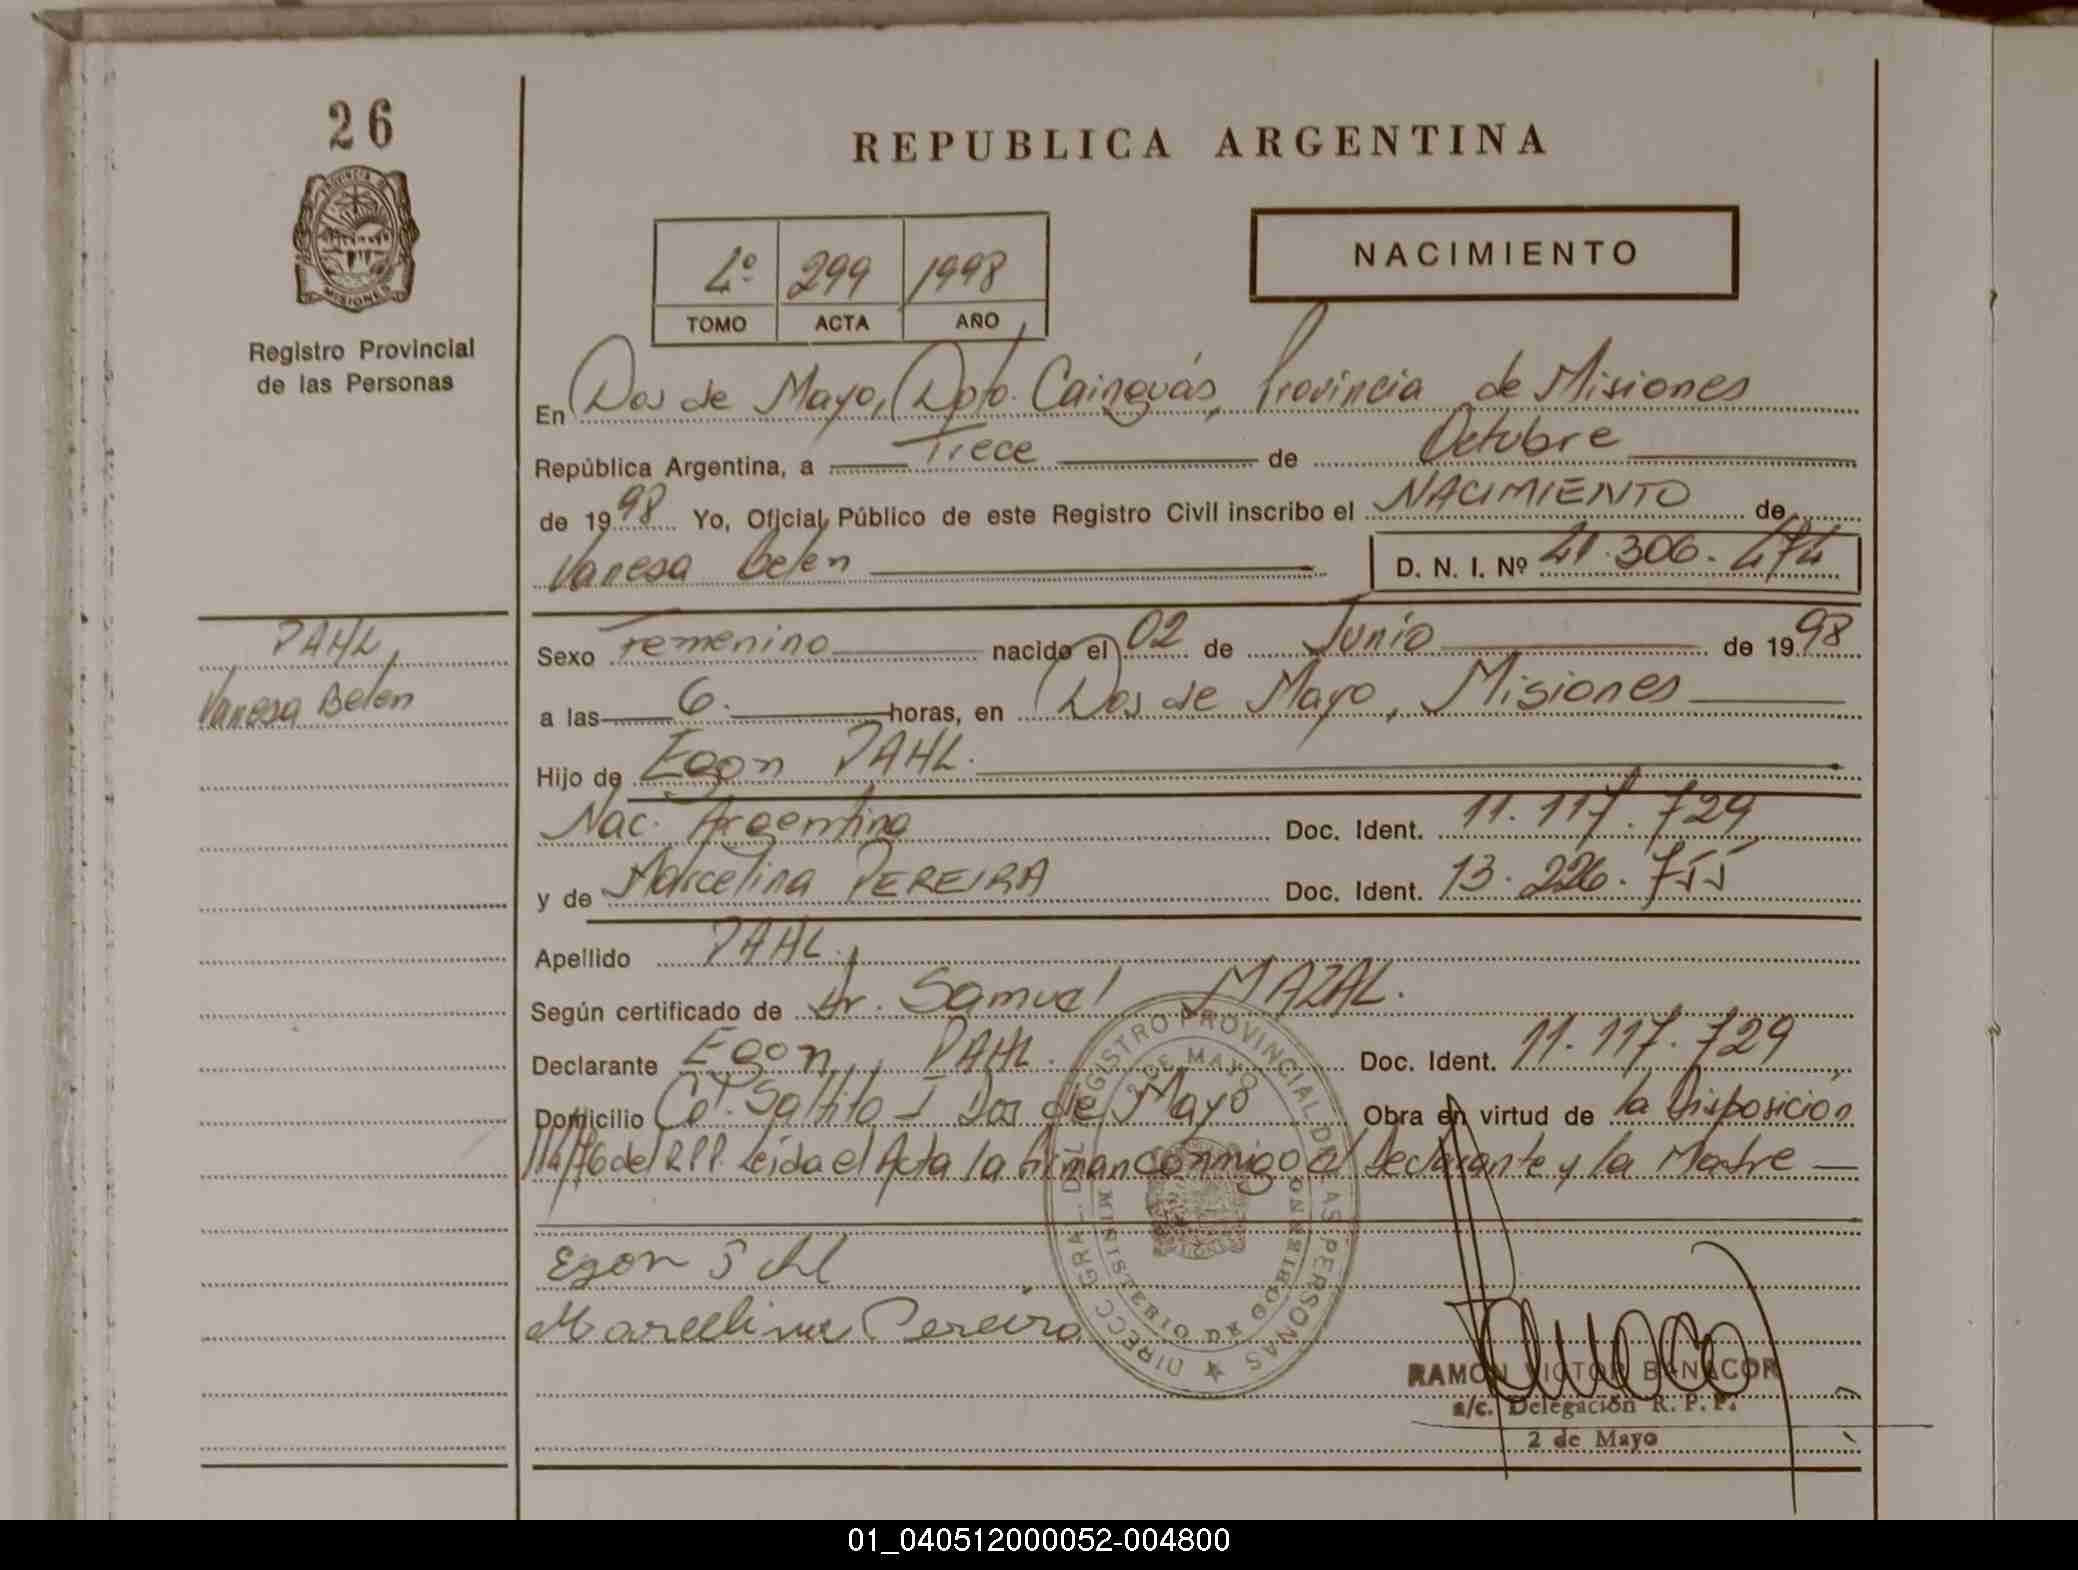 26
PROVINCIA DE
MISIONES
Registro Provincial
de las Personas
REPUBLICA ARGENTINA
4º 299 1998
TOMO ACTA AÑO
NACIMIENTO
En Dos de Mayo, Dpto. Cainguás, Provincia de Misiones
República Argentina, a Trece de Octubre
de 1998 Yo, Oficial Público de este Registro Civil inscribo el NACIMIENTO de
Vanesa Belen D. N. I. Nº 41.306.474
PAHL
Vanesa Belen
Sexo Femenino nacido el 02 de Junio de 1998
a las 6. horas, en Dos de Mayo, Misiones
Hijo de Egon PAHL.
Nac. Argentina Doc. Ident. 11.117.729
y de Marcelina PEREIRA Doc. Ident. 13.226.755
Apellido PAHL.
Según certificado de Dr. Samuel MAZAL.
Declarante Egon PAHL. Doc. Ident. 11.117.729
Domicilio Col. Saltito I Dos de Mayo Obra en virtud de la Disposición
114/76 del R.P.P. Leída el Acta la firman conmigo el Declarante y la Madre
Egon
Marcelina Pereira
DIRECC. GRAL. DEL REGISTRO PROVINCIAL DE LAS PERSONAS
2 DE MAYO
MINISTERIO DE GOBIERNO
RAMON VICTOR BENACOR
a/c. Delegación R. P. P.
2 de Mayo
01_040512000052-004800